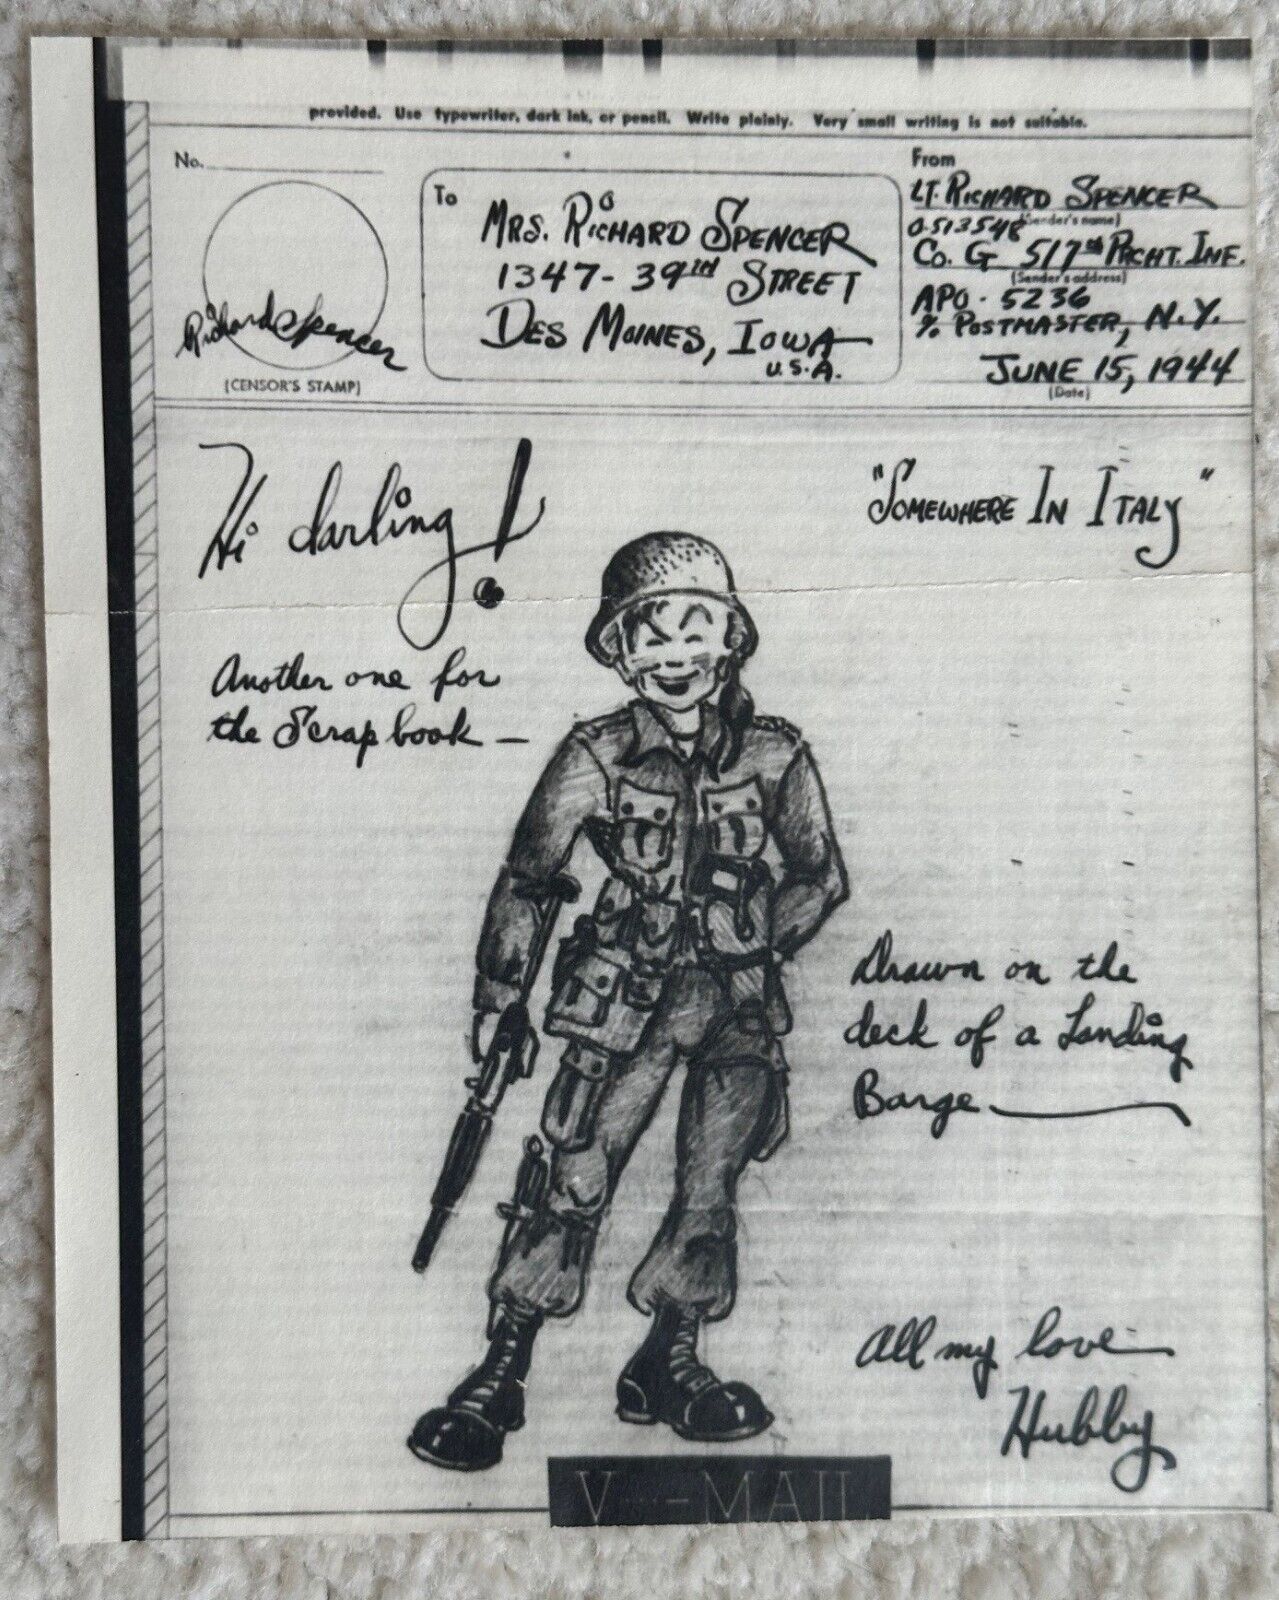 provided. Use typewriter, dark ink, or pencil. Write plainly. Very small writing is not suitable.
No.
Richard Spencer
(CENSOR'S STAMP)
To
MRS. RICHARD SPENCER
1347 - 39TH STREET
DES MOINES, IOWA
U.S.A.
From
LT. RICHARD SPENCER
(Sender's name)
O-513548
CO. G 517TH PRCHT. INF.
(Sender's address)
APO - 5236
% POSTMASTER, N.Y.
JUNE 15, 1944
(Date)
Hi darling!
"SOMEWHERE IN ITALY"
Another one for
the Scrap book —
Drawn on the
deck of a Landing
Barge
All my love
Hubby
V---MAIL